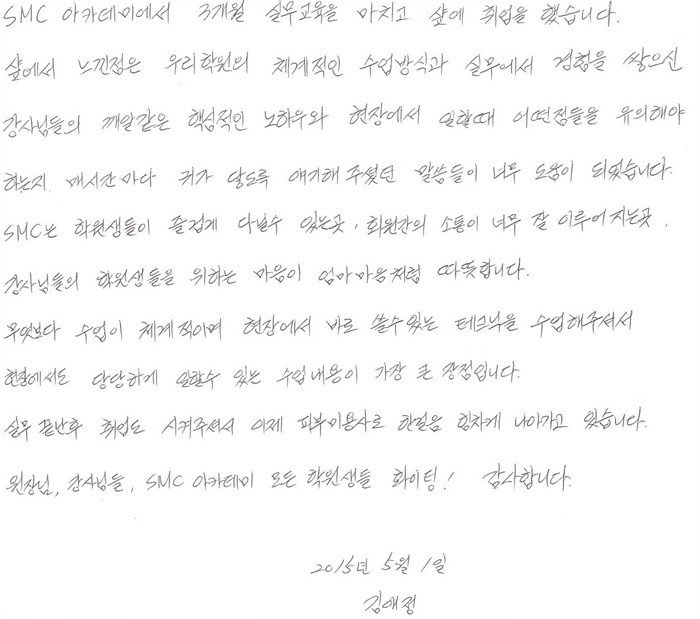 SMC 아카데미에서 3개월 실무교육을 마치고 샾에 취업을 했습니다.
샾에서 느낀점은 우리학원의 체계적인 수업방식과 실무에서 경험을 쌓으신
강사님들의 깨알같은 핵심적인 노하우와 현장에서 일할때 어떤점들을 유의해야
하는지 매시간마다 귀가 닳도록 얘기해 주셨던 말씀들이 너무 도움이 되었습니다.
SMC는 학원생들이 즐겁게 다닐수 있는곳, 회원간의 소통이 너무 잘 이루어지는곳,
강사님들의 학원생들을 위하는 마음이 엄마마음처럼 따뜻합니다.
무엇보다 수업이 체계적이며 현장에서 바로 쓸수있는 테크닉을 수업해주셔서
현장에서도 당당하게 일할수 있는 수업내용이 가장 큰 장점입니다.
실무 끝난후 취업도 시켜주셔서 이제 피부미용사로 한걸음 힘차게 나아가고 있습니다.
원장님, 강사님들, SMC 아카데미 모든 학원생들 화이팅! 감사합니다.
2015년 5월 1일
김애정